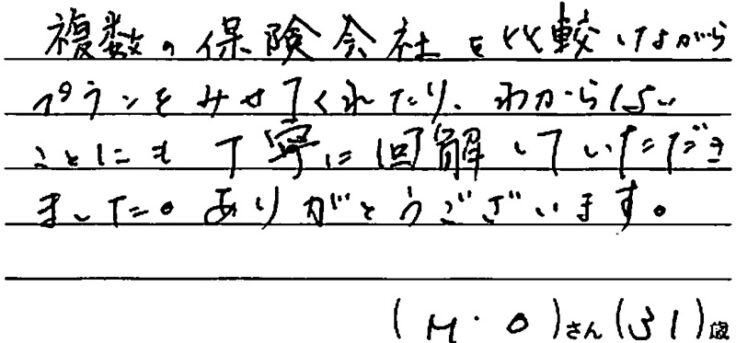 複数の保険会社を比較しながら
プランをみせてくれたり、わからない
ことにも丁寧に回解していただき
ました。ありがとうございます。
(M・O)さん(31)歳